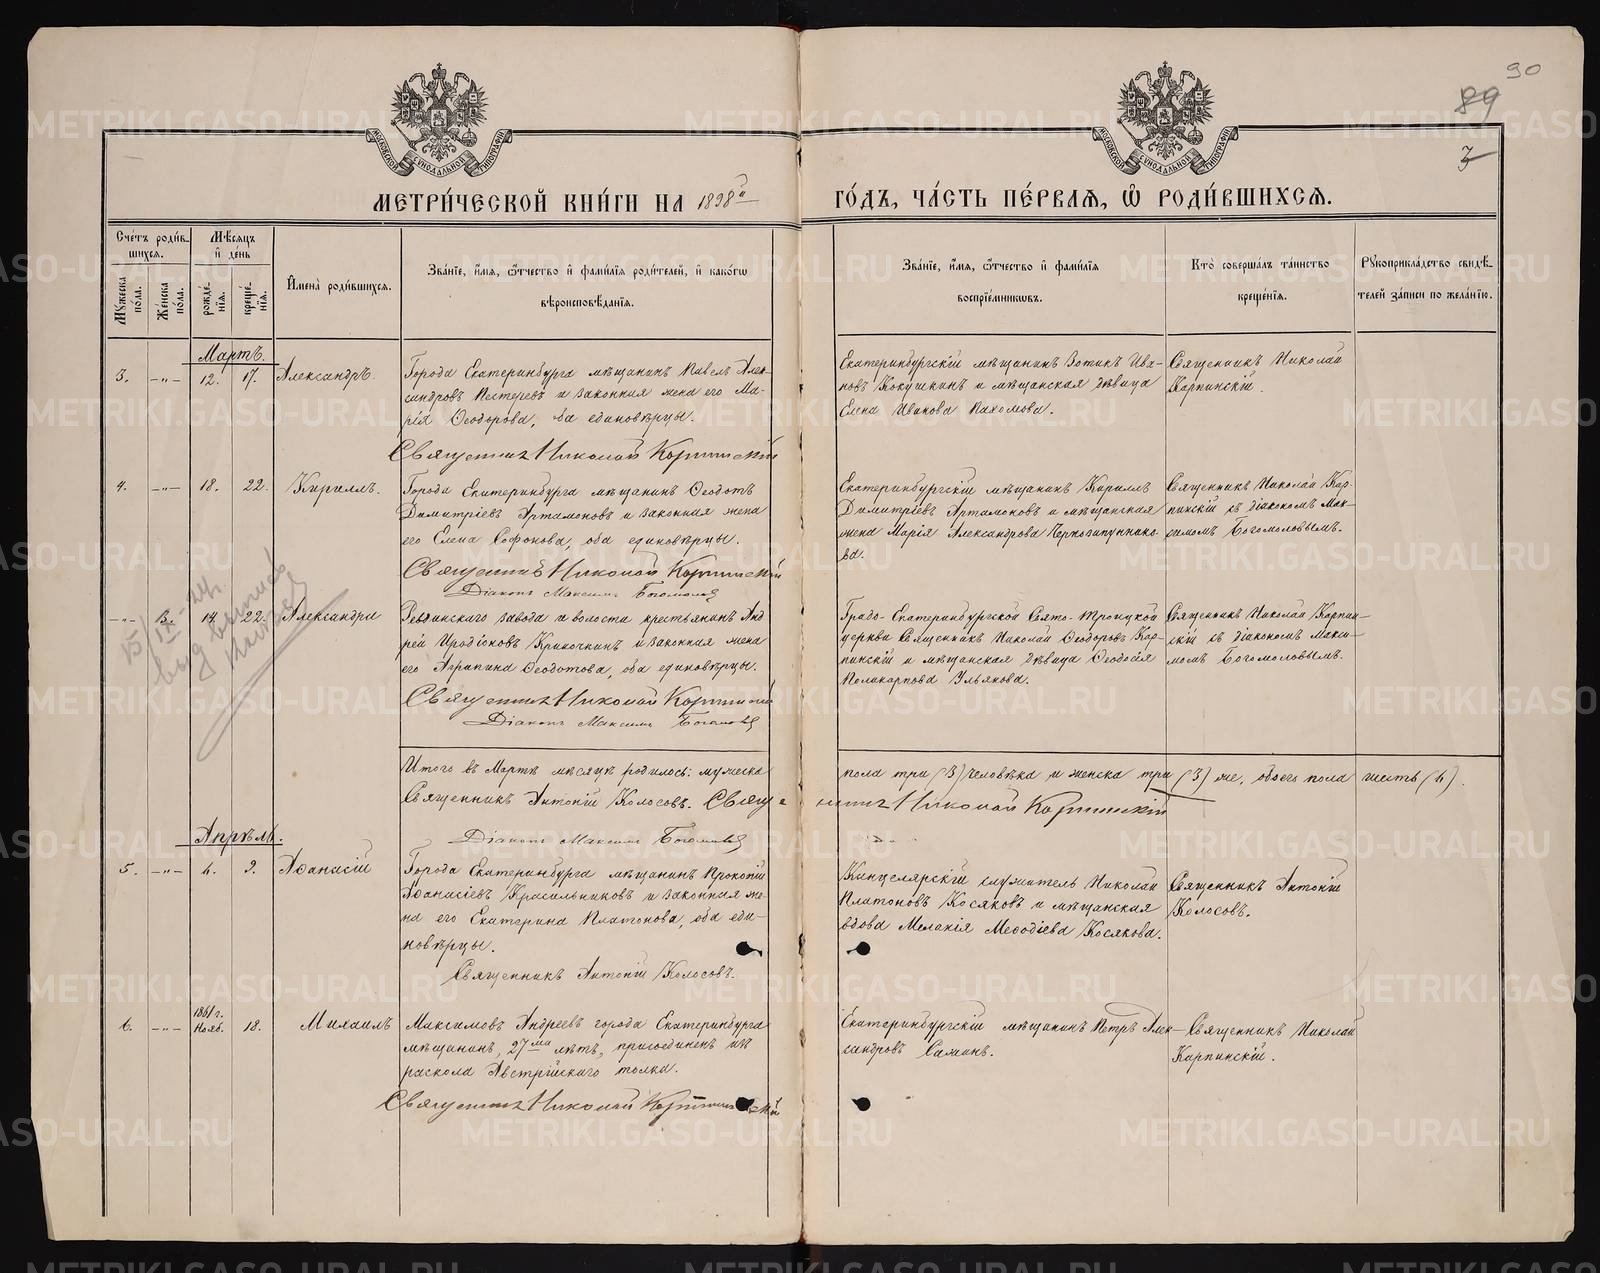 90
89
3
МОСКОВСКОЙ СѴНОДАЛЬНОЙ ТИПОГРАФІИ
МОСКОВСКОЙ СѴНОДАЛЬНОЙ ТИПОГРАФІИ
МЕТРИ́ЧЕСКОЙ КНИ́ГИ НА 1898й
ГО́ДЪ, ЧА́СТЬ ПЕ́РВАѦ, Ѿ РОДИ́ВШИХСѦ.
Сче́тъ роди́в-
шихся.
Мѣсяцъ
и де́нь
Мꙋжеска по́ла.
Же́нска по́ла.
рожде́-нїя.
креще́-нїя.
И҆мена̀ роди́вшихся.
Зва́нїе, и҆́мя, ѻ҆́тчество и҆ фами́лїя роди́телей, и҆ како́гѡ
вѣроисповѣ́данїя.
Зва́нїе, и҆́мя, ѻ҆́тчество и҆ фами́лїя
воспрїе́мникѡвъ.
Кто̀ соверша́лъ та́инство
креще́нїя.
Рꙋкоприкла́дство свидѣ́-
телей за́писи по жела́нїю.
Мартъ.
3. -„- 12. 17. Александръ.
Города Екатеринбурга мѣщанинъ Павелъ Алек-
сандровъ Нестеревъ и законная жена его Ма-
рія Ѳеодорова, оба единовѣрцы.
Священникъ Николай Карпинскій
Екатеринбургскій мѣщанинъ Зотикъ Ива-
новъ Кокушкинъ и мѣщанская дѣвица
Елена Иванова Пахомова.
Священникъ Николай
Карпинскій.
4. -„- 18. 22. Кириллъ.
Города Екатеринбурга мѣщанинъ Ѳеодотъ
Димитріевъ Артамоновъ и законная жена
его Елена Софонова, оба единовѣрцы.
Священникъ Николай Карпинскій
Діаконъ Максимъ Богомоловъ
Екатеринбургскій мѣщанинъ Кириллъ
Димитріевъ Артамоновъ и мѣщанская
жена Марія Александрова Черноз­ипуннико-
ва.
Священникъ Николай Кар-
пинскій съ діакономъ Мак-
симомъ Богомоловымъ.
-„- 3. 14. 22. Александра
Ревдинскаго завода и волости крестьянинъ Анд
рей Иродіоновъ Крикочкинъ и законная жена
его Агрипина Ѳеодотова, оба единовѣрцы.
Священникъ Николай Карпинскій
Діаконъ Максимъ Богомоловъ
Градо-Екатеринбургской Свято-Троицкой
церкви Священникъ Николай Ѳеодоровъ Кар-
пинскій и мѣщанская дѣвица Ѳеодосія
Поликарпова Ульянова.
Священникъ Николай Карпин-
скій съ діакономъ Макси-
момъ Богомоловымъ.
Итого въ Мартѣ мѣсяцѣ родилось: мужеска
пола три (3) человѣка и женска три (3) же, обоего пола шесть (6).
Священникъ Антоній Колосовъ. Священникъ Николай Карпинскій
Діаконъ Максимъ Богомоловъ
Апрѣль.
5. -„- 6. 9. Аѳанасій
Города Екатеринбурга мѣщанинъ Прокопій
Аѳанасіевъ Красильниковъ и законная же-
на его Екатерина Платонова, оба еди-
новѣрцы.
Священникъ Антоній Колосовъ.
Канцелярскій служитель Николай
Платоновъ Косяковъ и мѣщанская
вдова Меланія Меѳодіева Косякова.
Священникъ Антоній
Колосовъ.
6. -„- 1861 г. Нояб. 18. Михаилъ
Максимовъ Андреевъ города Екатеринбурга
мѣщанинъ, 27ми лѣтъ, присоединенъ изъ
раскола Австрійскаго толка.
Священникъ Николай Карпинскій
Екатеринбургскій мѣщанинъ Петръ Алек-
сандровъ Саминъ.
Священникъ Николай
Карпинскій.
METRIKI.GASO-URAL.RU